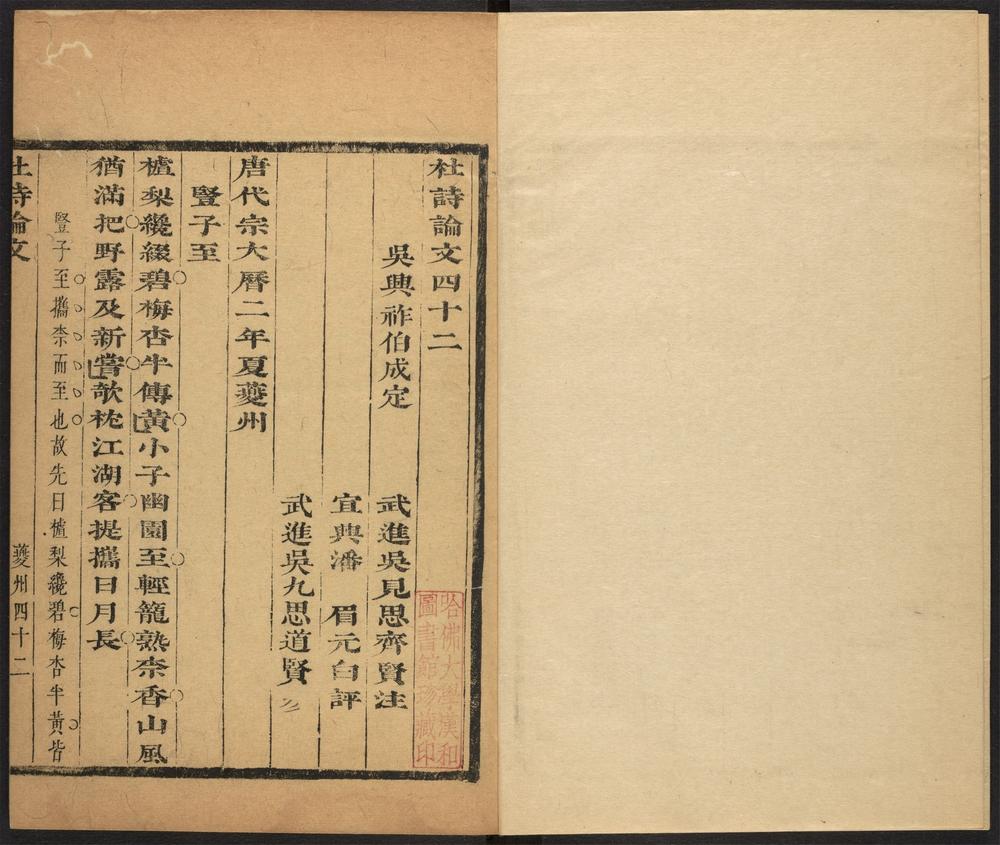 杜詩論文四十二
吳興祚伯成定　武進吳見思齊賢注
宜興潘　眉元白評
武進吳九思道賢
唐代宗大曆二年夏夔州
豎子至
樝梨纔綴碧梅杏半傳黃小子幽園至輕籠熟柰香山風
猶滿把野露及新嘗欹枕江湖客提攜日月長
豎子至攜柰而至也故先曰樝梨纔碧梅杏半黃皆
杜詩論文　夔州四十二
哈佛大學漢和
圖書館珍藏印